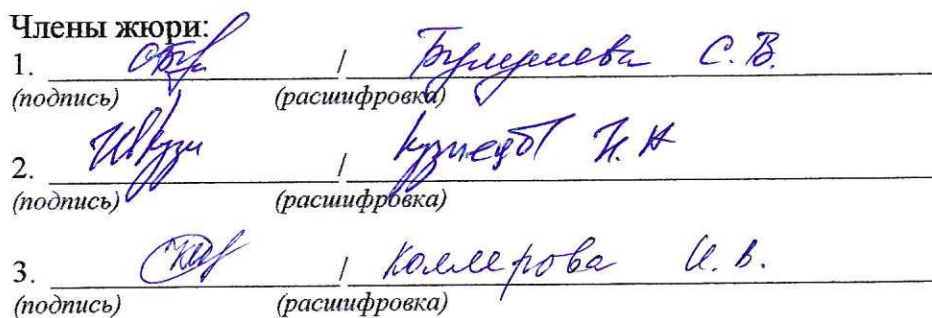 Члены жюри:
1. / С. В.
(подпись) (расшифровка)
2. / Кузнецов И. Н
(подпись) (расшифровка)
3. / Коллерова И. В.
(подпись) (расшифровка)